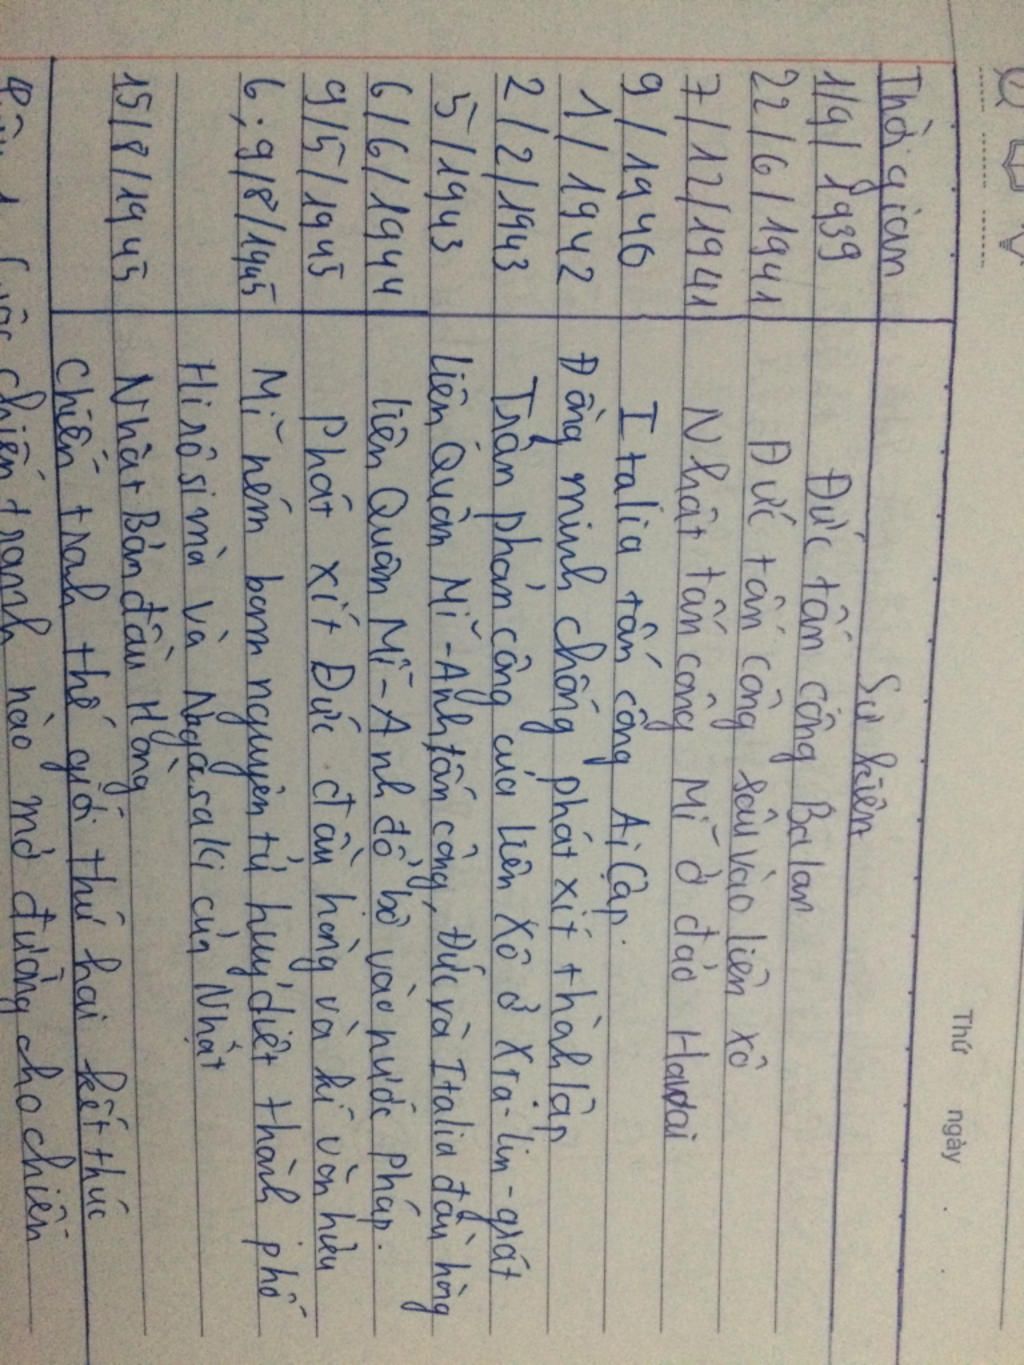 Thứ ngày
Thời gian Sự kiện
1/9/1939 Đức tấn công Ba lan
22/6/1941 Đức tấn công sâu vào liên xô
7/12/1941 Nhật tấn công Mĩ ở đảo Hawai
9/1940 Italia tấn công Ai Cập.
1/1942 Đồng minh chống phát xít thành lập
2/2/1943 Trận phản công của Liên Xô ở Xta-lin-grát
5/1943 liên Quân Mĩ-Anh tấn công, Đức và Italia đầu hàng
6/6/1944 liên Quân Mĩ-Anh đổ bộ vào nước Pháp.
9/5/1945 Phát xít Đức đầu hàng và kí vô
6;9/8/1945 Mĩ ném bom nguyên tử huỷ diệt thành phố
Hirôsima và Ngasaki của Nhật
15/8/1945 Nhật Bản đầu Hàng
Chiến tranh thế giới thứ hai kết thúc
chiến tranh nào mở đường cho chiến